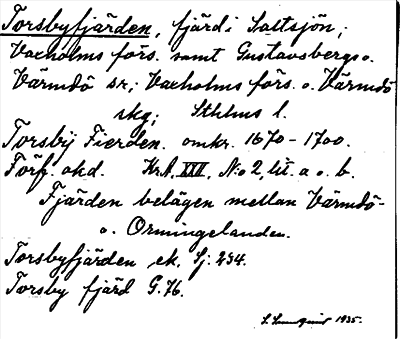 Torsbyfjärden, fjärd i Saltsjön;
Vaxholms förs. samt Gustavsbergs o.
Värmdö sr; Vaxholms förs. o. Värmdö
skg; Sthlms l.
Torsbÿ Fierden. omkr. 1670-1700.
Förf. okd. Kr.A. XXII, No 2, litt. a o. b.
Fjärden belägen mellan Värmdö-
o. Ormingelanden.
Torsbyfjärden ek. Sj. 234.
Torsby fjärd G. 76.
1935.